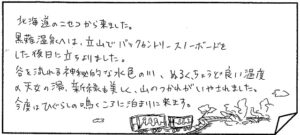 北海道のニセコから来ました。
黒薙温泉へは、立山でバックカントリースノーボードを
した後日に立ちよりました。
谷を流れる神秘的な水色の川、ぬるくちょうど良い温度
の天女の湯、新緑も美しく、山のつかれがいやされました。
今度はひぐらしの鳴くころに泊まりに来ます。